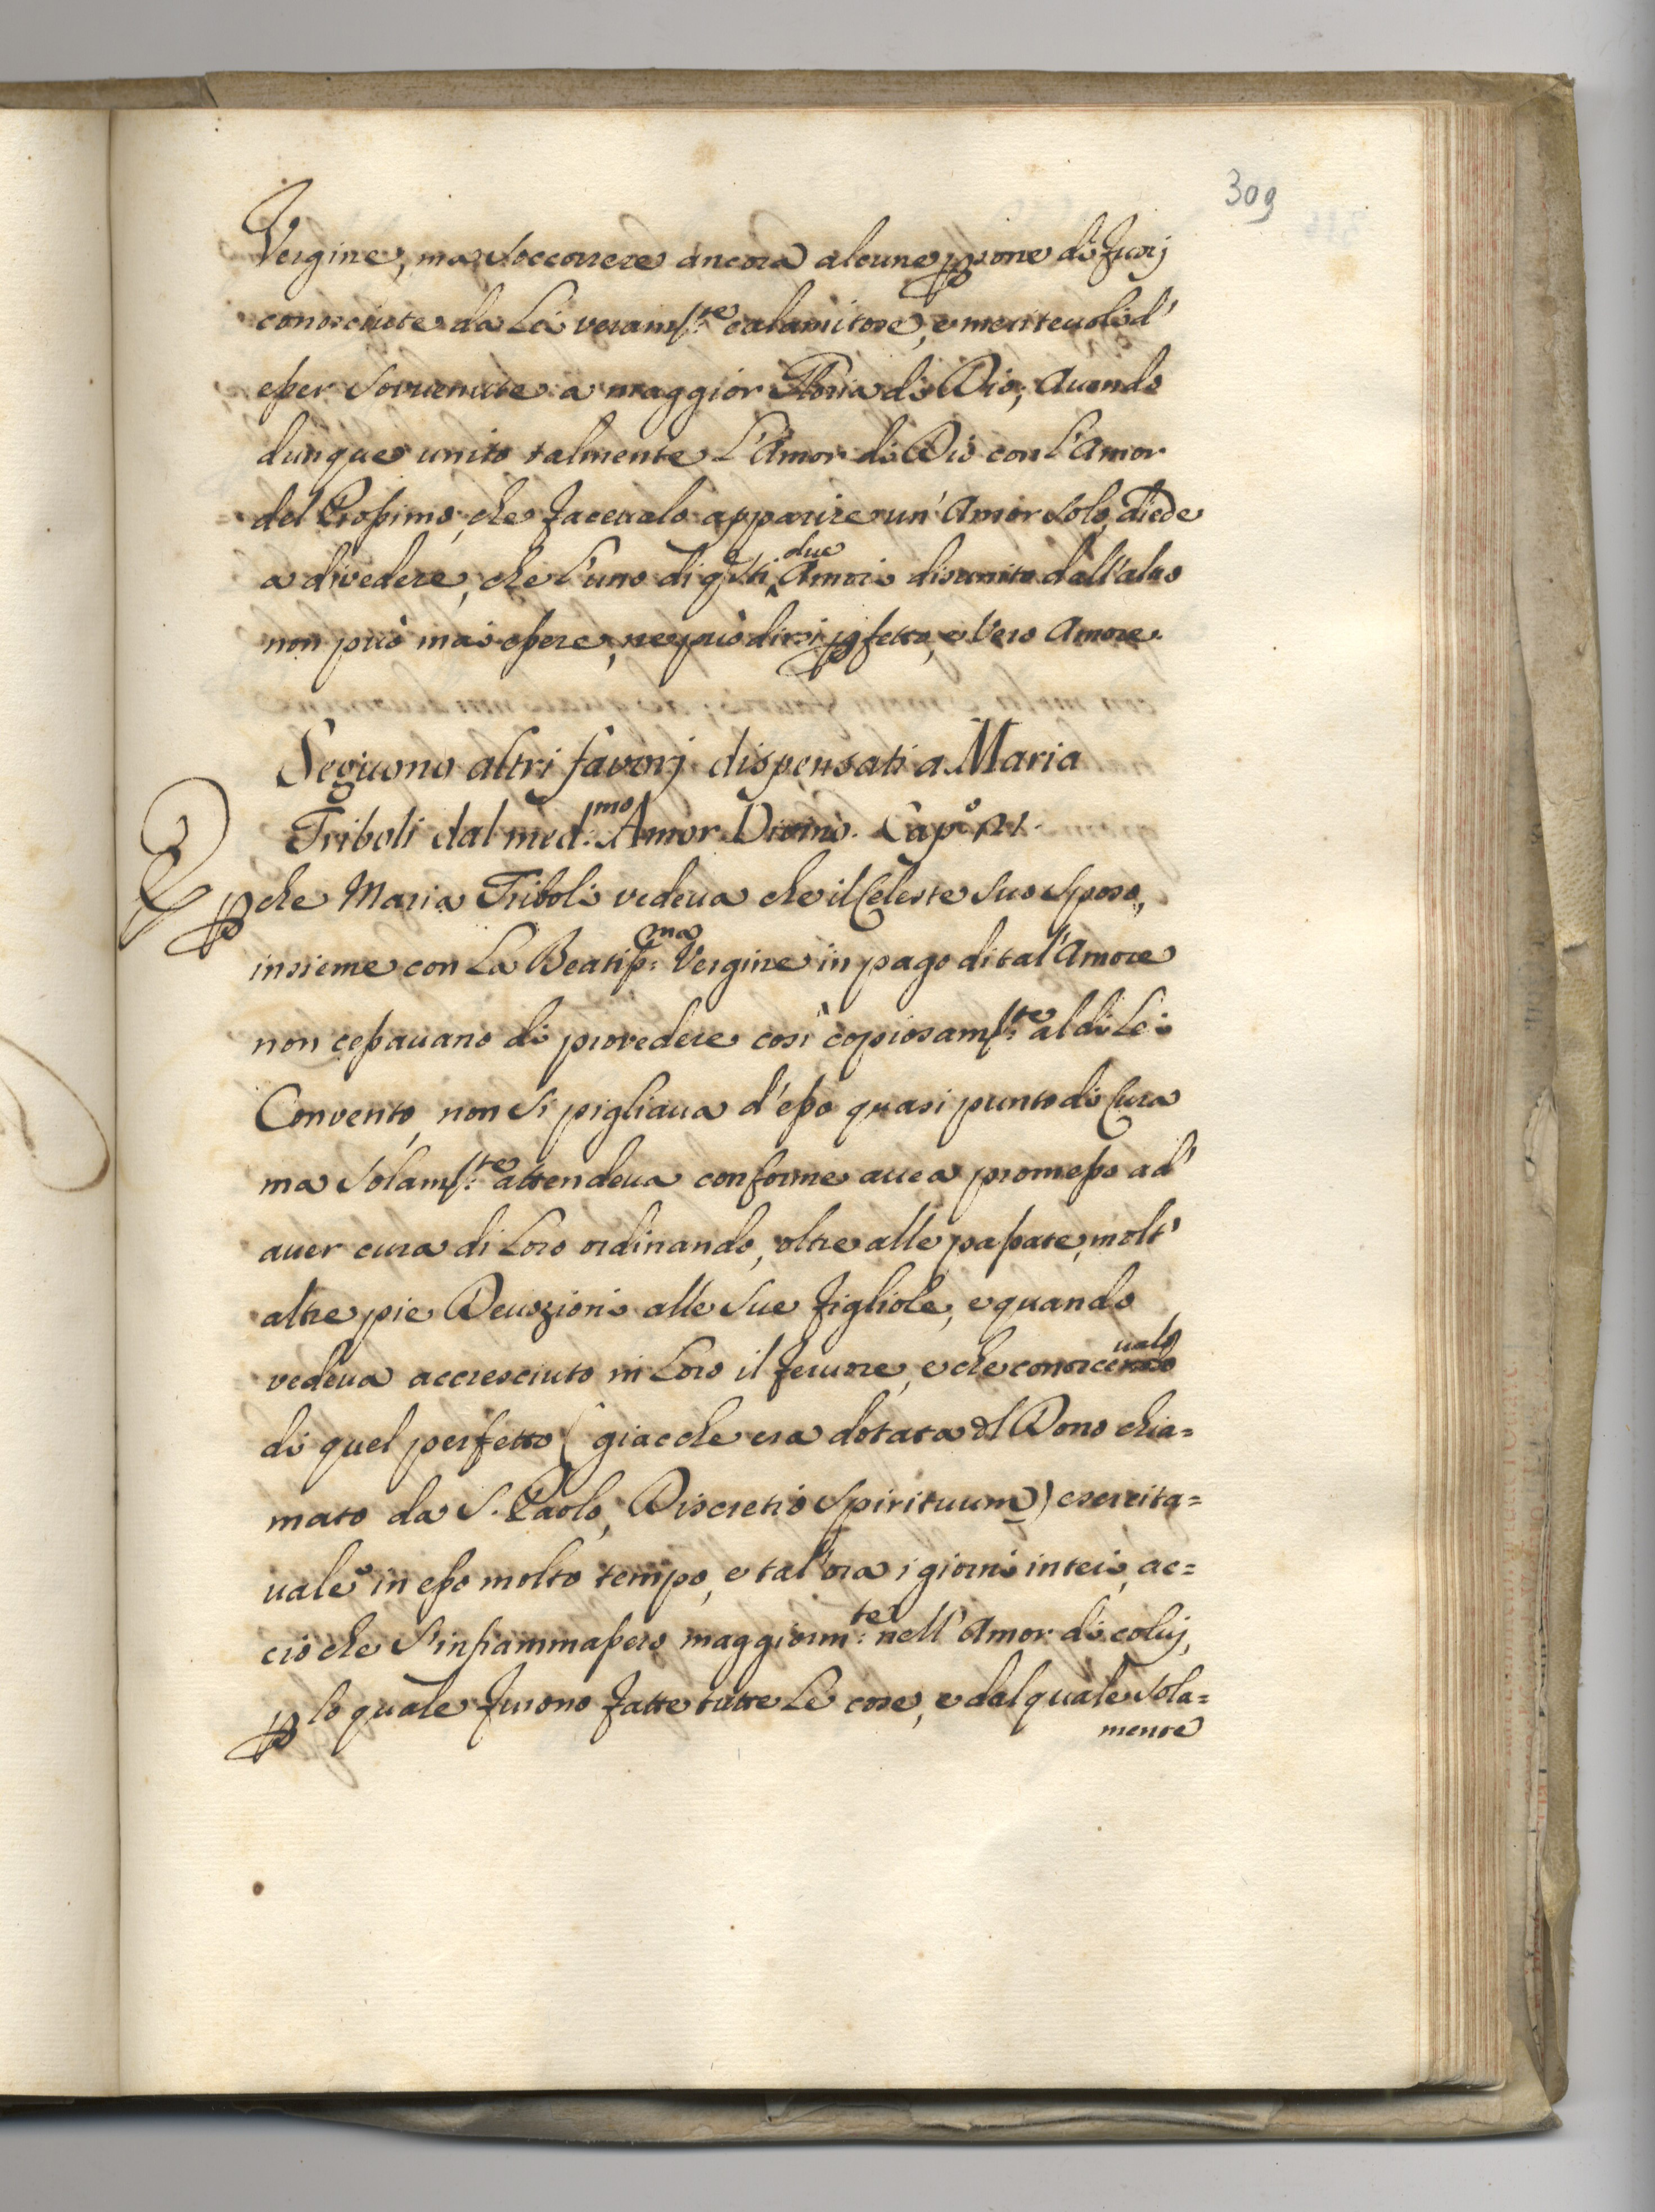 309
Vergine, ma soccorrere ancora alcune ꝑsone di fuorj
conosciute da Lei veram:te calamitose, e meriteuoli d'
esser souuenute a maggior Gloria di Dio; Auendo
dunque unito talmente L'Amor di Dio con L'Amor
del Prossimo, che faceualo apparire un' Amor solo, diede
a divedere, che l'uno di q.esti due Amori disunito dall'altro
non può mai essere, ne può dirsi ꝑfetto, e Vero Amore.
Seguono altri favorj dispensati a Maria
Triboli dal med:mo Amor Divino. Cap.o 121.
ꝑche Maria Triboli vedeua che il Celeste suo sposo,
insieme con La Beatiss:ma Vergine in pago di tal'Amore
non cessauano di provedere così copiosam:te al di Lei
Convento, non si pigliaua d'esso quasi punto di Cura
ma solam:te attendeua conforme auea promesso ad'
auer cura di Loro ordinando, oltre alle passate, molt'
altre pie Deuozioni alle sue figliole, e quando
vedeua accresciuto in Loro il feruore, e che conosceualo
di quel perfetto (giacche era dotata dl Dono chia=
mato da S. Paolo, Discretio Spirituum) esercita=
uale in esso molto tempo, e tal'ora i giorni interi, ac=
ciò che s'infiammassero maggiorm:te nell'Amor di coluj,
ꝑ lo quale furono fatte tutte Le cose, e dal quale sola=
mente